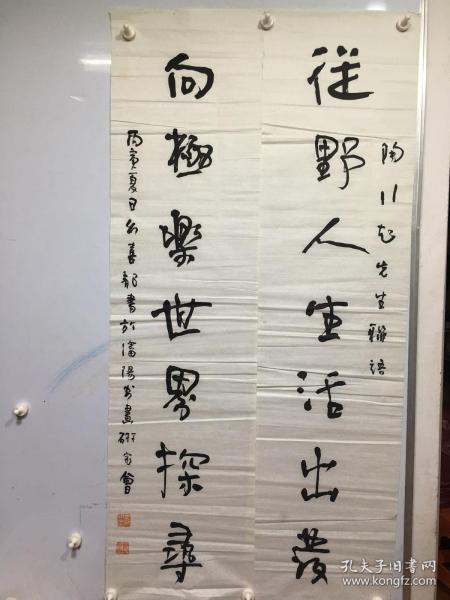 陶川起先生雅语
從野人生活出發
向極樂世界探尋
丙寅夏日公喜龍書於沈陽書畫研究會
孔夫子旧书网
www.kongfz.com